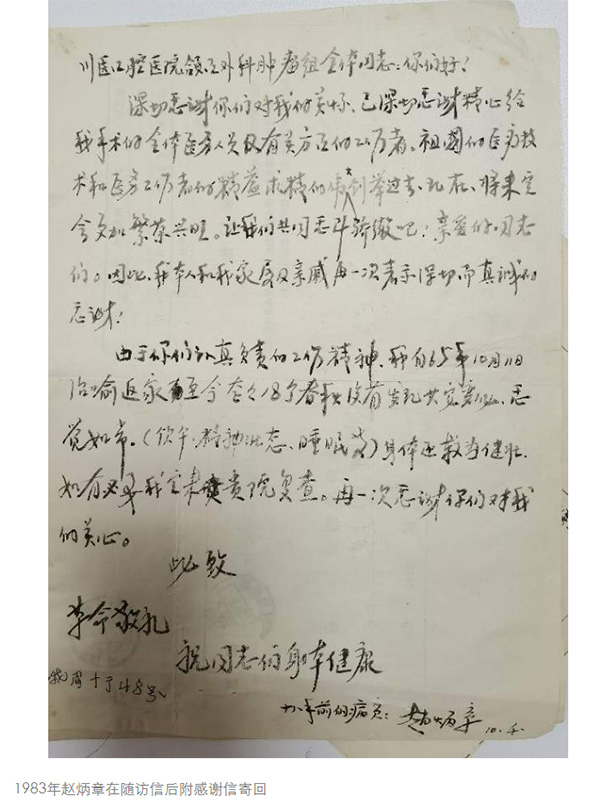 川医口腔医院颌面外科肿瘤组全体同志：你们好！
深切感谢你们对我的关怀、已深切感谢精心给
我手术的全体医务人员及有关方面的工作者。祖国的医疗技
术和医务工作者的精益求精的伟大创举过去、现在、将来定
会更加繁荣兴旺。让我们共同志斗骄傲吧！亲爱的同志
们。因此，我本人和我家属及亲戚再一次表示深切而真诚的
感谢！
由于你们认真负责的工作精神，我自65年10月11日
治喻返家至今18个春秋没有发现其它变化、感
觉如常。（饮午、精神状态、睡眠等）身体还较为健壮、
如有必要我定来贵院复查。再一次感谢你们对我
的关心。
此致
革命敬礼
祝同志们身体健康
48号
十八年前的病员：赵炳章 10.5.
1983年赵炳章在随访信后附感谢信寄回